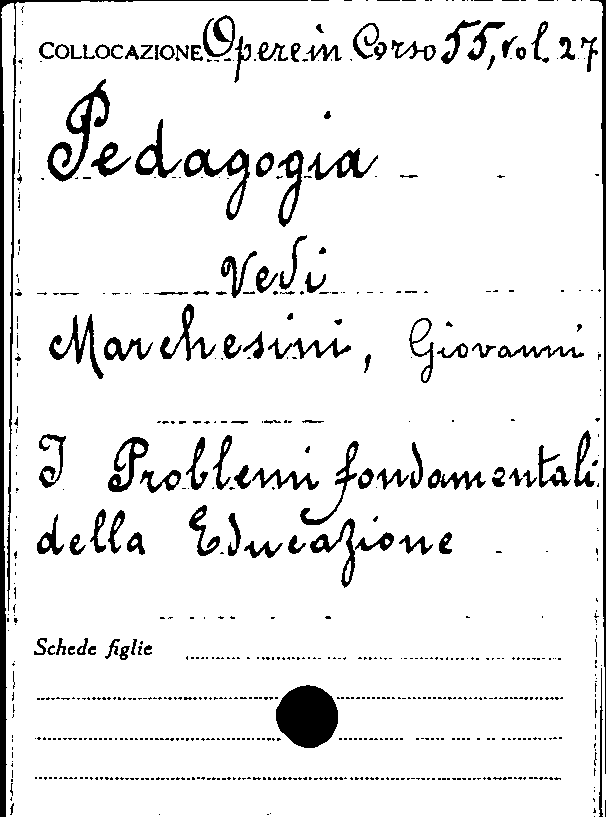 COLLOCAZIONE Opere in Corso 55, vol. 27
Pedagogia
Vedi
Marchesini, Giovanni
I Problemi fondamentali
della Educazione
Schede figlie